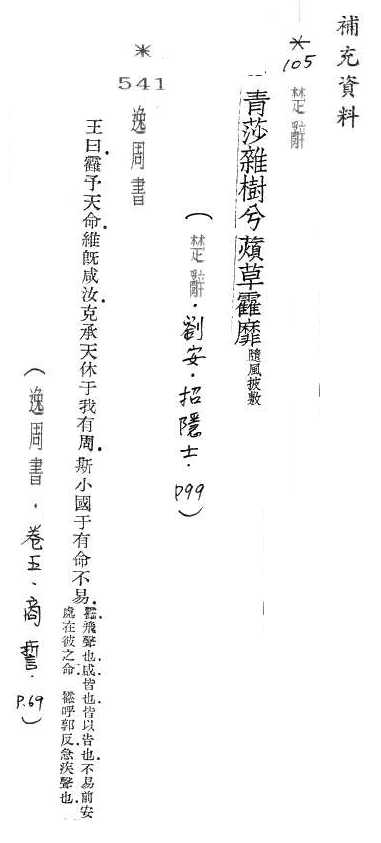 補充資料
*
105
楚辭
青莎雜樹兮薠草靃靡隨風披敷
(楚辭.劉安.招隱士.P99)
*
541
逸周書
王曰靃予天命維既咸汝克承天休于我有周斯小國于有命不易
靃飛聲也咸皆也皆以告也不易前安
處在彼之命 靃呼郭反急疾聲也
(逸周書.卷五、商誓.P.69)